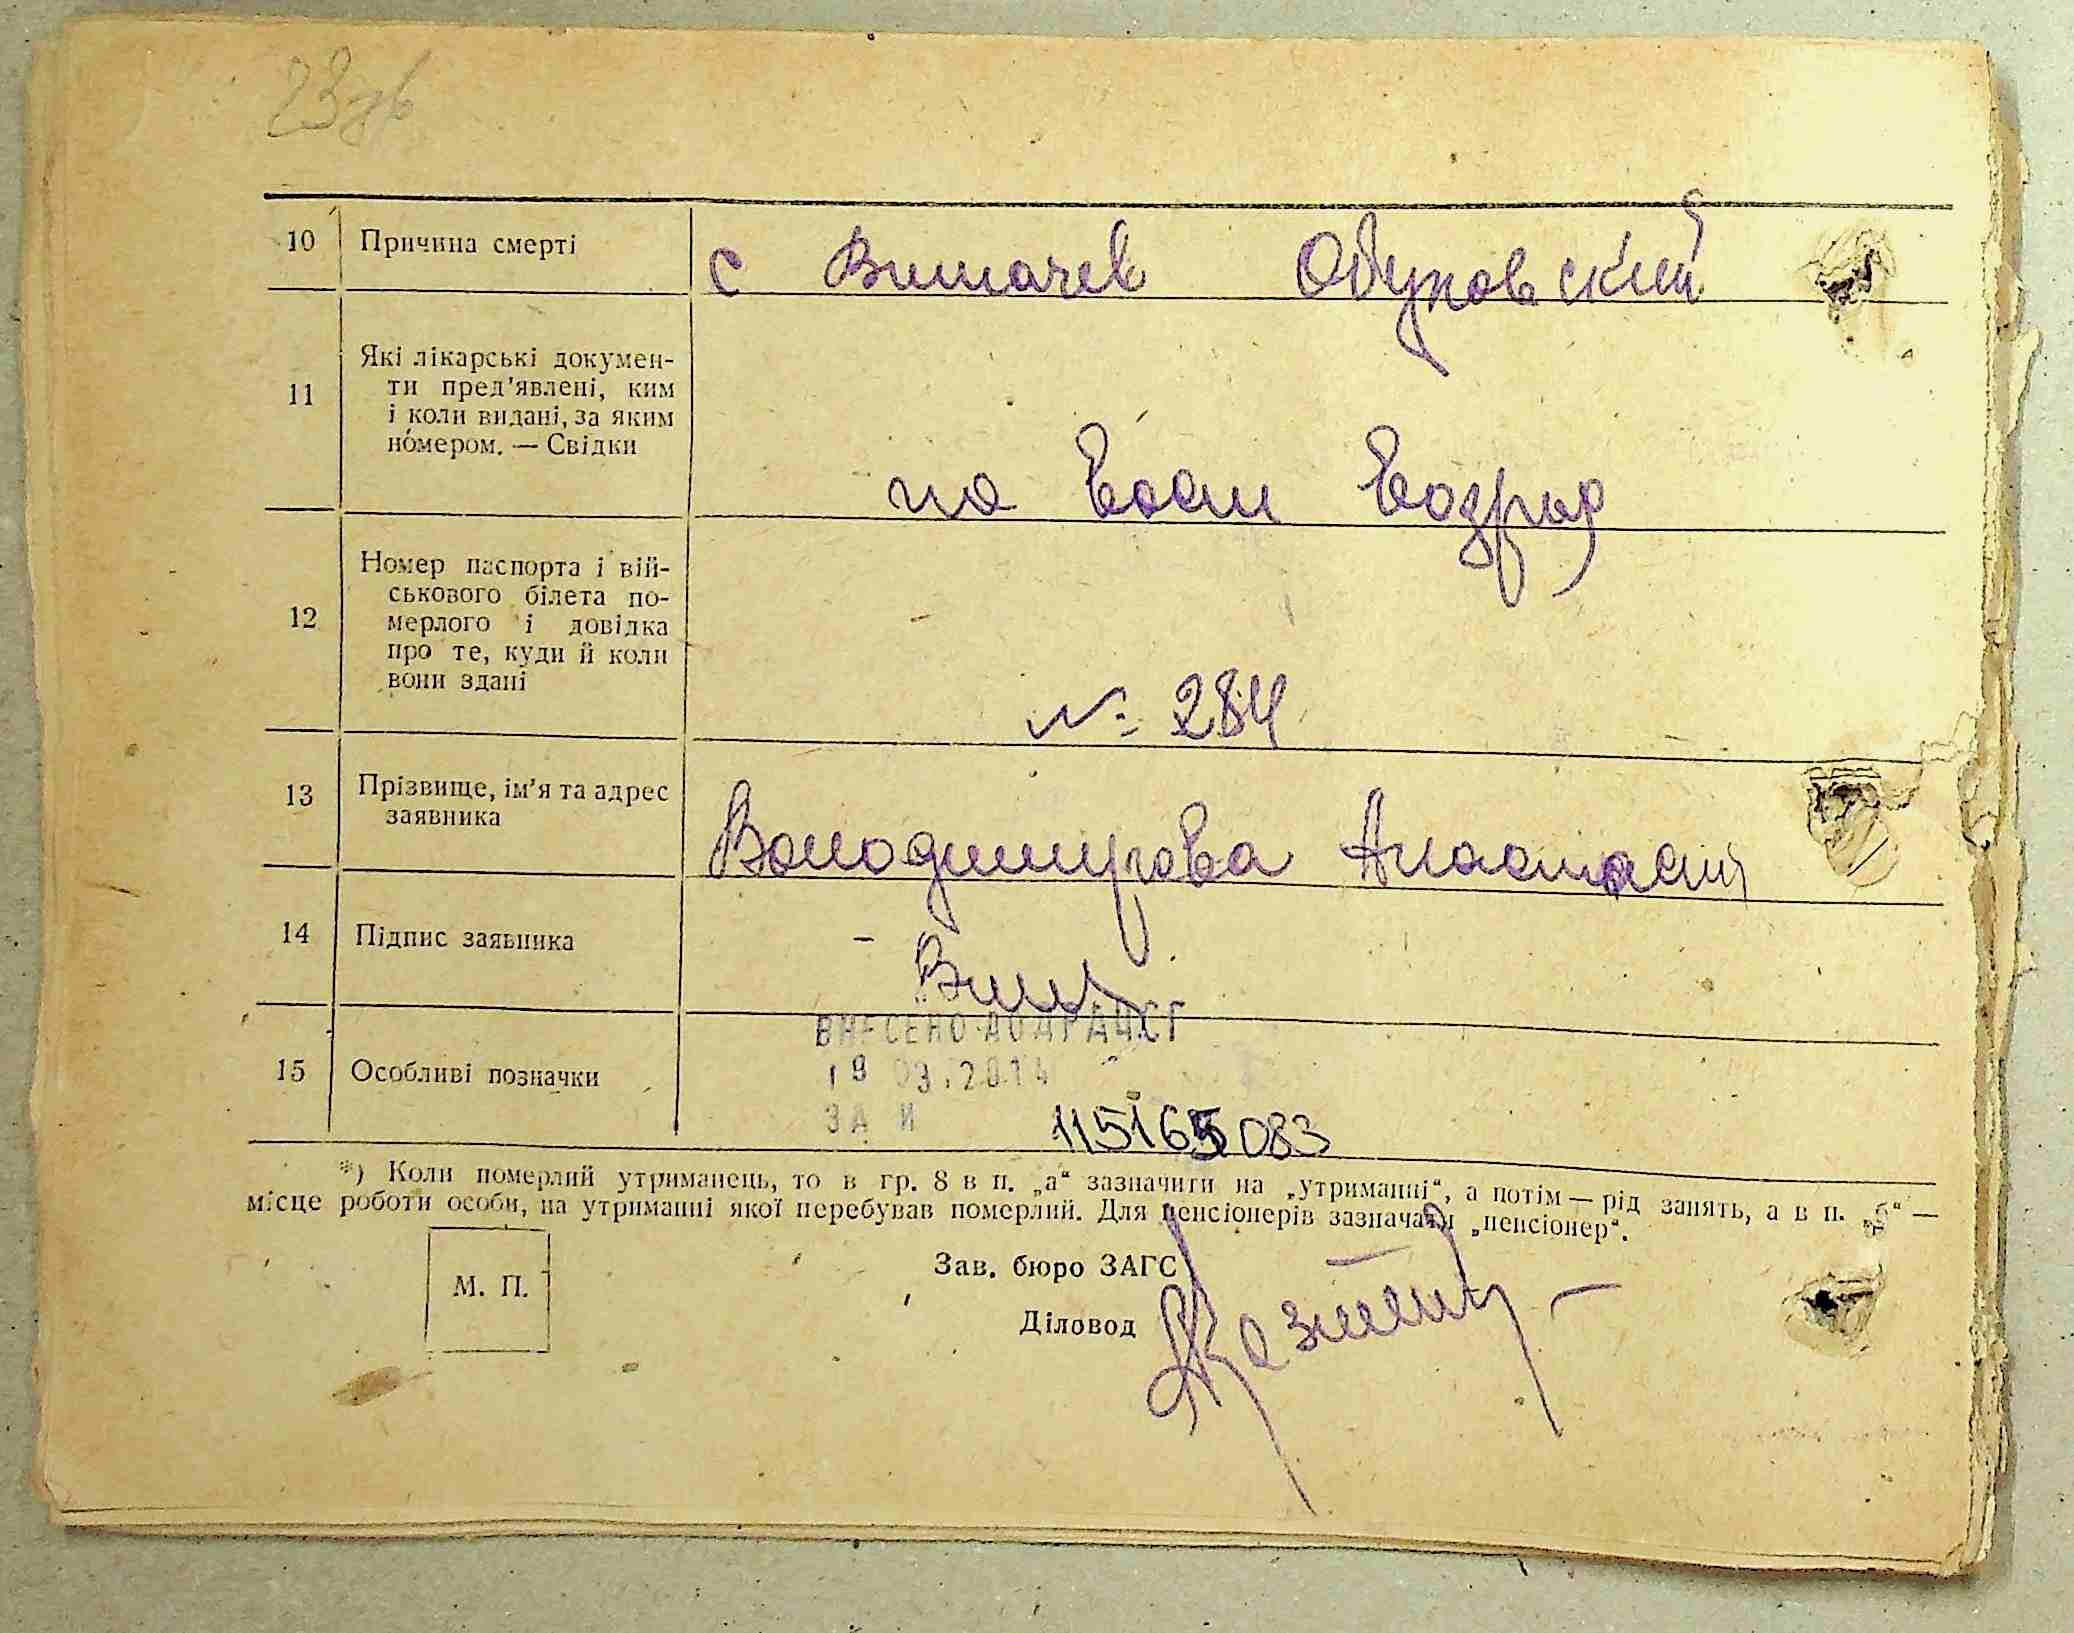 23зв
10 Причина смерті с Витачев Обуховский
11 Які лікарські докумен-
ти пред'явлені, ким
і коли видані, за яким
номером. — Свідки
по
12 Номер паспорта і вій-
ськового білета по-
мерлого і довідка
про те, куди й коли
вони здані
№ 284
13 Прізвище, ім'я та адрес
заявника
Володимирова Анастасия
14 Підпис заявника –
ВНЕСЕНО ДО ДРАЦСГ
15 Особливі позначки
19 03.2014
ЗА N 115165083
*) Коли померлий утриманець, то в гр. 8 в п. „а“ зазначити на „утриманні“, а потім — рід занять, а в п. „б“ —
місце роботи особи, на утриманні якої перебував померлий. Для пенсіонерів зазначати „пенсіонер“.
М. П.
Зав. бюро ЗАГС
Діловод